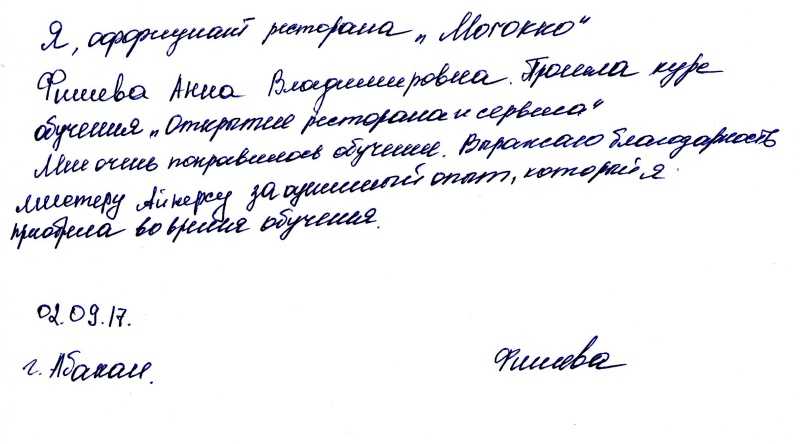 Я, официант ресторана „Могокко"
Фишева Анна Владимировна. Прошла курс
обучения „Открытие ресторана и сервиса"
Мне очень понравилось обучение. Выражаю благодарность
мистеру Айперсу за оценимый опыт, который я
приобрела во время обучения.
02.09.17.
г. Абакан.
Фишева